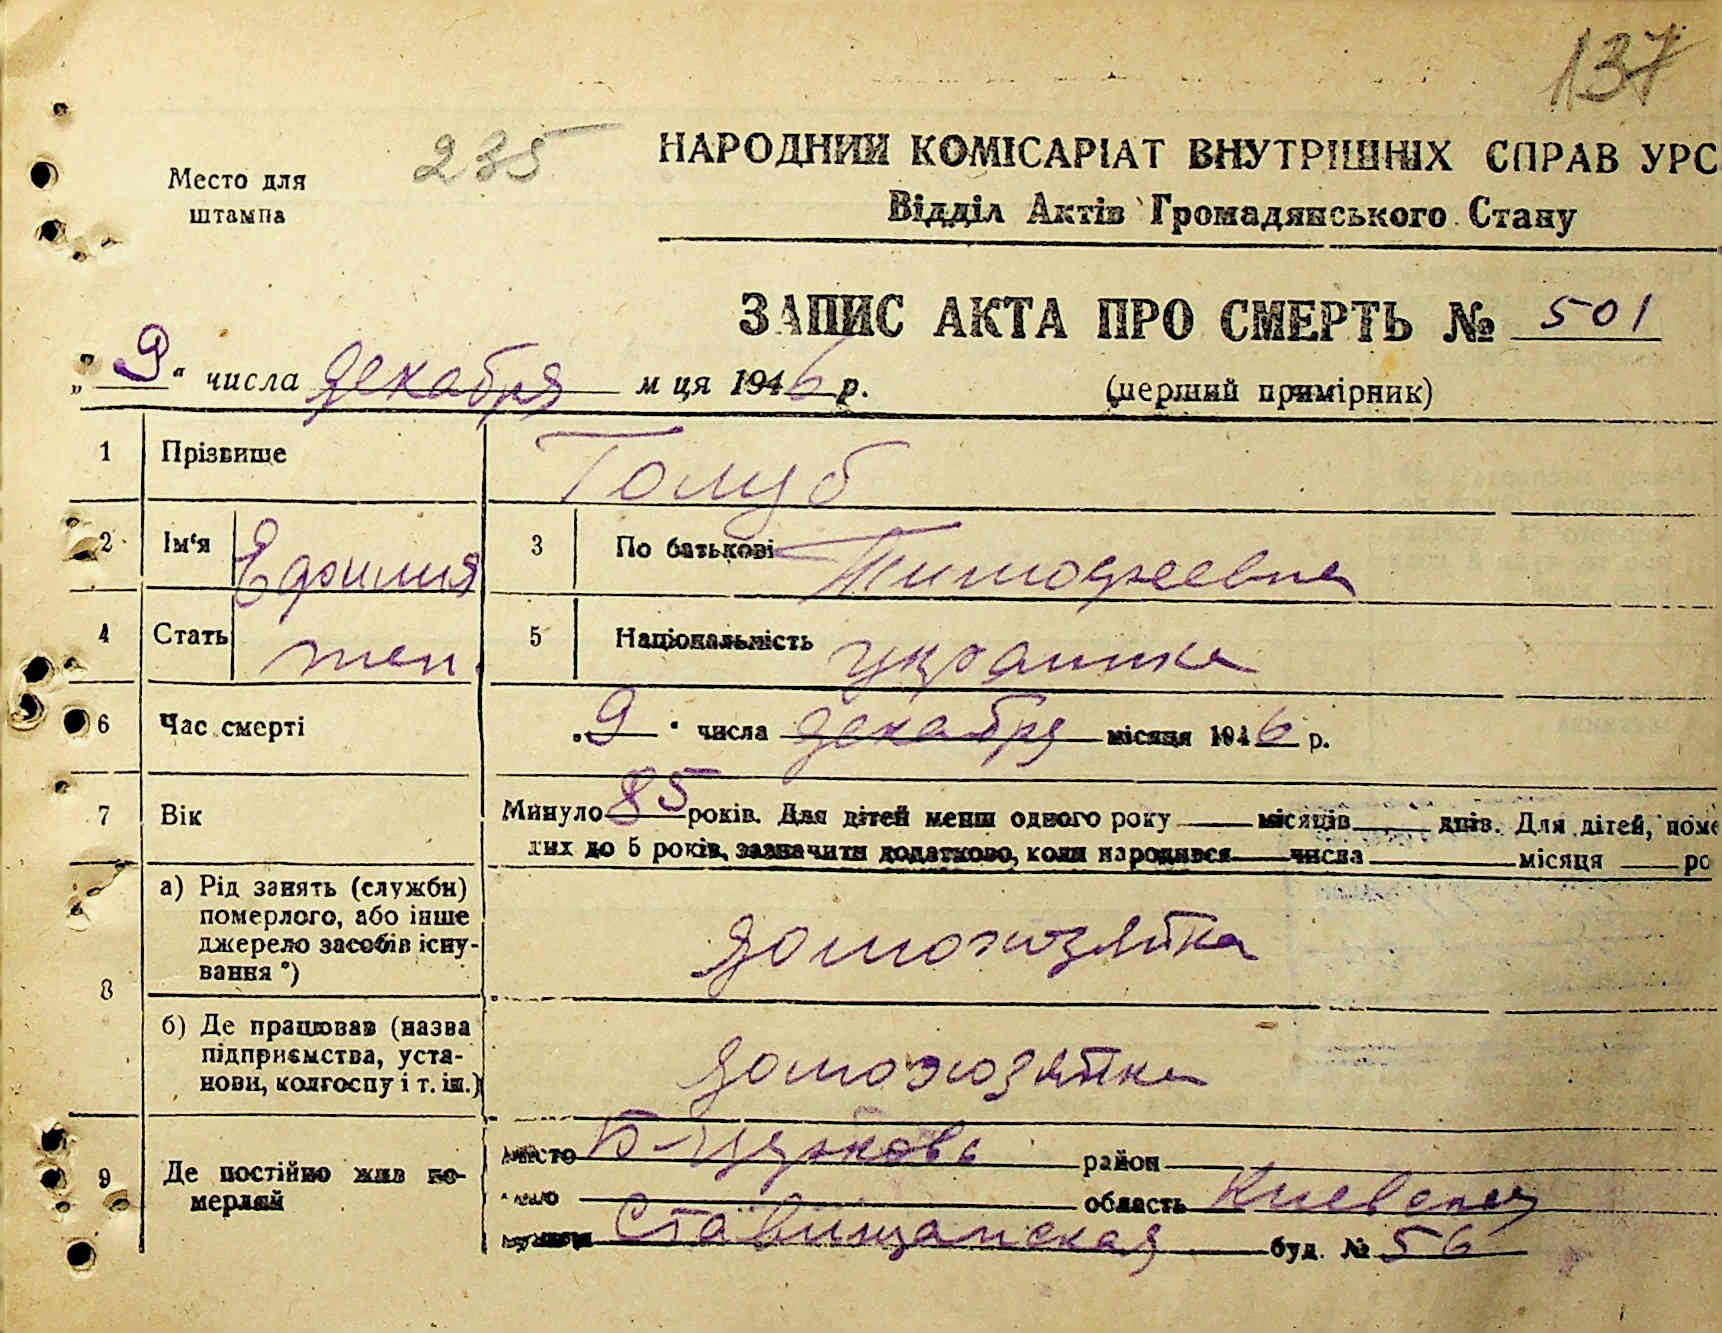 137
235
Место для
штампа
НАРОДНИЙ КОМІСАРІАТ ВНУТРІШНІХ СПРАВ УРС
Відділ Актів Громадянського Стану
ЗАПИС АКТА ПРО СМЕРТЬ № 501
„9“ числа декабря м ця 1946 р.
(перший примірник)
1 Прізвище Голуб
2 Ім'я Ефимия 3 По батькові Тимофеевна
4 Стать жен. 5 Національність украинка
6 Час смерті „9“ числа декабря місяця 1946 р.
7 Вік Минуло 85 років. Для дітей менш одного року місяців днів. Для дітей, поме
лих до 5 років, зазначити додатково, коли народився числа місяця ро
8 а) Рід занять (служби)
померлого, або інше
джерело засобів існу-
вання *)
домохозяйка
б) Де працював (назва
підприємства, уста-
нови, колгоспу і т. ін.)
домохозяйка
9 Де постійно жив по-
мерлий
місто Б-Церковь район
село область Киевская
Ставищанская буд. № 56